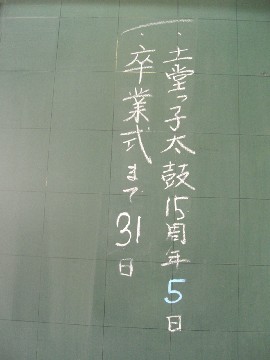 ・土堂っ子太鼓15周年5日
・卒業式まで31日